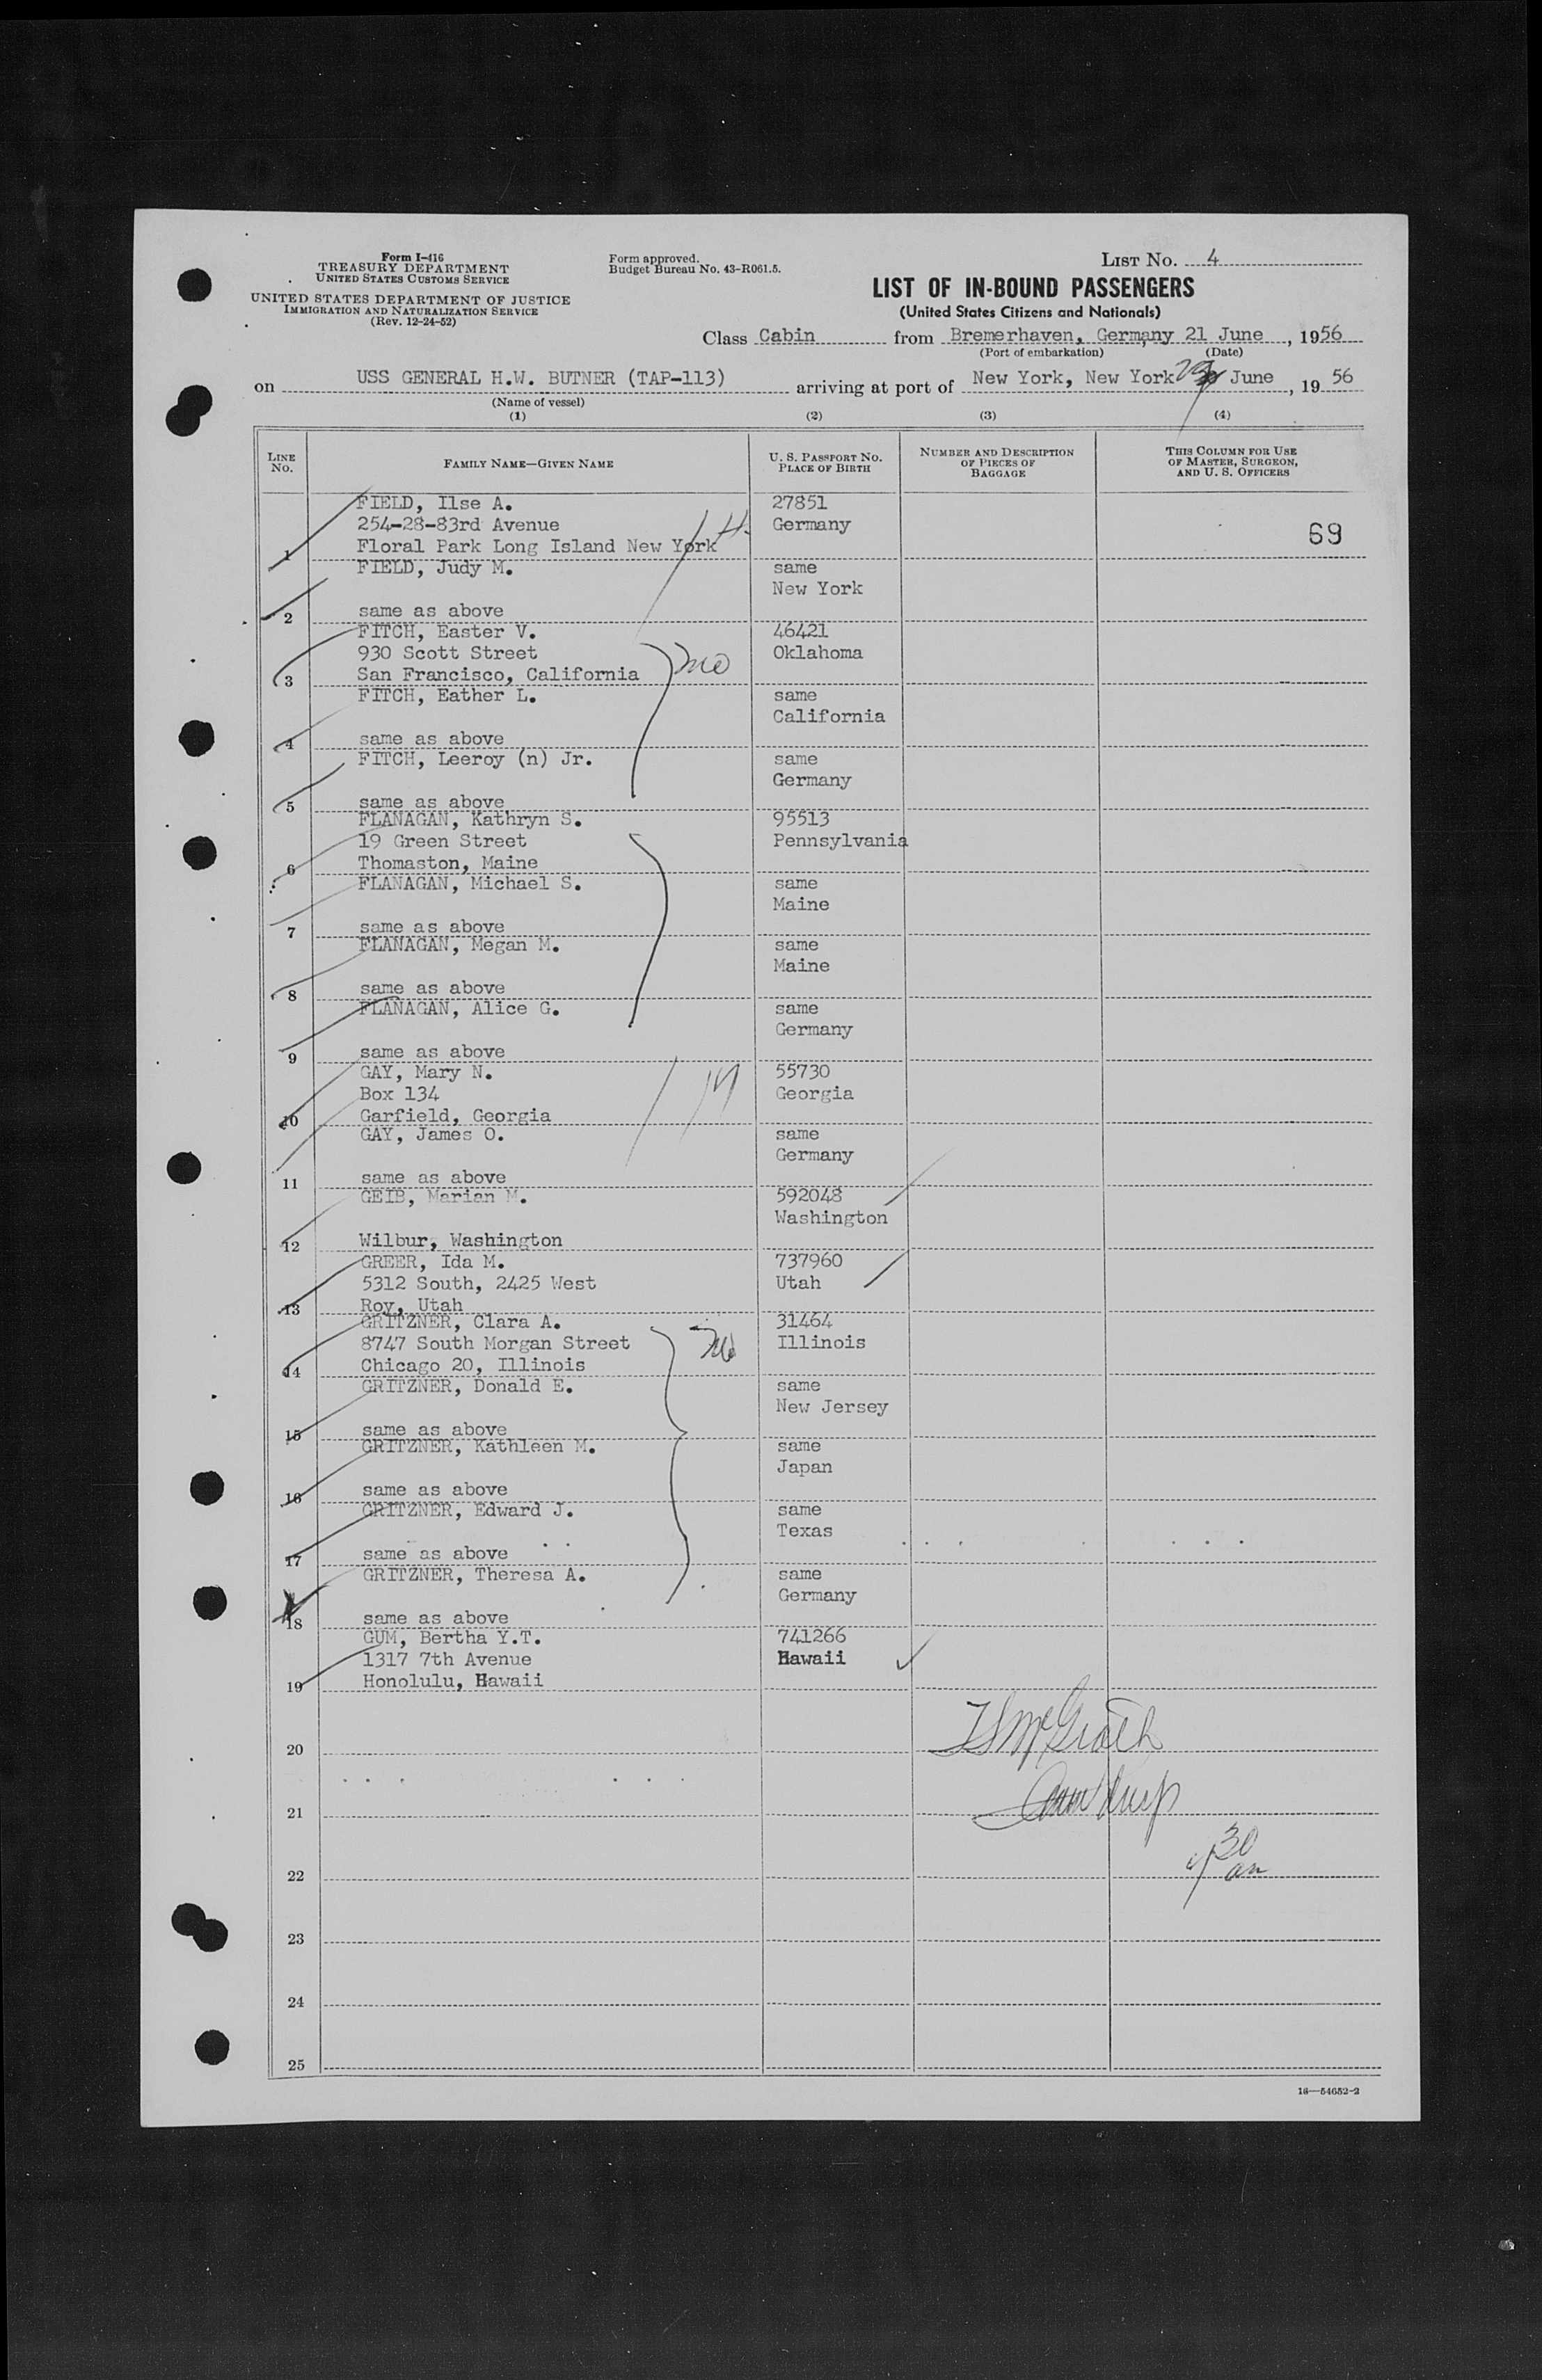 Form I-416
TREASURY DEPARTMENT
UNITED STATES CUSTOMS SERVICE
UNITED STATES DEPARTMENT OF JUSTICE
IMMIGRATION AND NATURALIZATION SERVICE
(Rev. 12-24-52)
Form approved.
Budget Bureau No. 43-R061.5.
LIST NO. 4
LIST OF IN-BOUND PASSENGERS
(United States Citizens and Nationals)
Class Cabin from Bremerhaven, Germany 21 June, 1956
(Port of embarkation) (Date)
on USS GENERAL H.W. BUTNER (TAP-113) arriving at port of New York, New York June, 1956
(Name of vessel)
(1) (2) (3) (4)
LINE NO.
FAMILY NAME—GIVEN NAME
U. S. PASSPORT NO. PLACE OF BIRTH
NUMBER AND DESCRIPTION OF PIECES OF BAGGAGE
THIS COLUMN FOR USE OF MASTER, SURGEON, AND U. S. OFFICERS
FIELD, Ilse A. 27851
254-28-83rd Avenue Germany 69
1 Floral Park Long Island New York
FIELD, Judy M. same
New York
2 same as above
FITCH, Easter V. 46421
930 Scott Street Oklahoma
3 San Francisco, California
FITCH, Eather L. same
California
4 same as above
FITCH, Leeroy (n) Jr. same
Germany
5 same as above
FLANAGAN, Kathryn S. 95513
19 Green Street Pennsylvania
6 Thomaston, Maine
FLANAGAN, Michael S. same
Maine
7 same as above
FLANAGAN, Megan M. same
Maine
8 same as above
FLANAGAN, Alice G. same
Germany
9 same as above
GAY, Mary N. 55730
Box 134 Georgia
10 Garfield, Georgia
GAY, James O. same
Germany
11 same as above
GEIB, Marian M. 592048
Washington
12 Wilbur, Washington
GREER, Ida M. 737960
5312 South, 2425 West Utah
13 Roy, Utah
GRITZNER, Clara A. 31464
8747 South Morgan Street Illinois
14 Chicago 20, Illinois
GRITZNER, Donald E. same
New Jersey
15 same as above
GRITZNER, Kathleen M. same
Japan
16 same as above
GRITZNER, Edward J. same
Texas
17 same as above
GRITZNER, Theresa A. same
Germany
18 same as above
GUM, Bertha Y.T. 741266
1317 7th Avenue Hawaii
19 Honolulu, Hawaii
20
21
22
23
24
25
16—54652-2